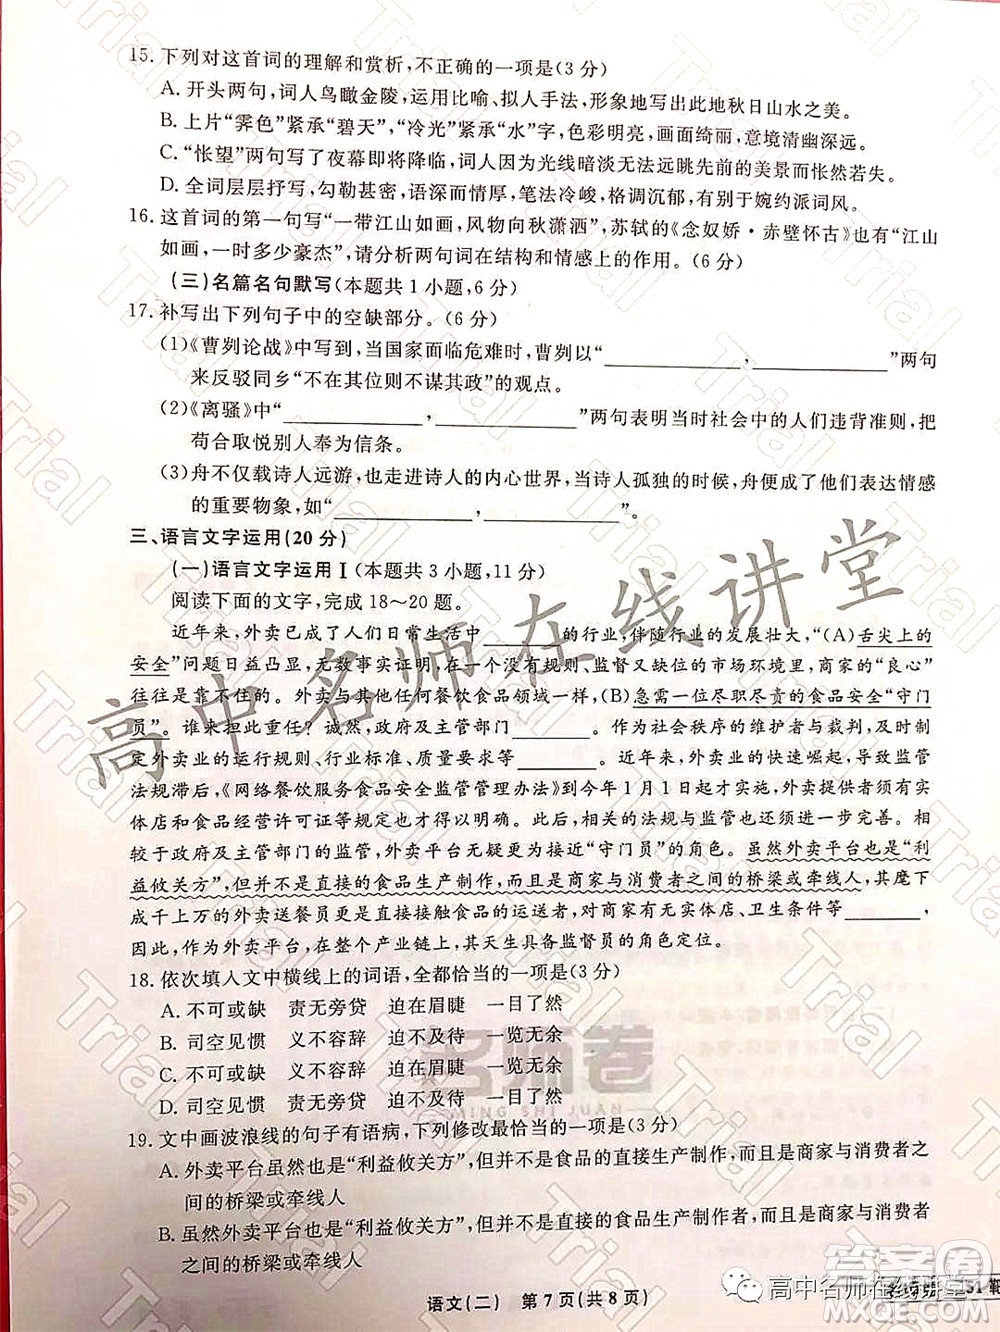 15. 下列对这首词的理解和赏析,不正确的一项是(3 分)
A. 开头两句,词人鸟瞰金陵,运用比喻、拟人手法,形象地写出此地秋日山水之美。
B. 上片“霁色”紧承“碧天”,“冷光”紧承“水”字,色彩明亮,画面绮丽,意境清幽深远。
C. “怅望”两句写了夜幕即将降临,词人因为光线暗淡无法远眺先前的美景而怅然若失。
D. 全词层层抒写,勾勒甚密,语深而情厚,笔法冷峻,格调沉郁,有别于婉约派词风。
16. 这首词的第一句写“一带江山如画,风物向秋潇洒”,苏轼的《念奴娇·赤壁怀古》也有“江山
如画,一时多少豪杰”,请分析两句词在结构和情感上的作用。(6 分)
(三)名篇名句默写(本题共 1 小题,6 分)
17. 补写出下列句子中的空缺部分。(6 分)
(1)《曹刿论战》中写到,当国家面临危难时,曹刿以“________,________”两句
来反驳同乡“不在其位则不谋其政”的观点。
(2)《离骚》中“________,________”两句表明当时社会中的人们违背准则,把
苟合取悦别人奉为信条。
(3)舟不仅载诗人远游,也走进诗人的内心世界,当诗人孤独的时候,舟成了诗人表达情感
的重要物象,如“________,________”。
三、语言文字运用(20 分)
(一)语言文字运用Ⅰ(本题共 3 小题,11 分)
阅读下面的文字,完成 18~20 题。
近年来,外卖已成了人们日常生活中________的行业,伴随行业的发展壮大,“(A)舌尖上的
安全”问题日益凸显,无数事实证明,在没有规则、监督又缺位的市场环境里,商家的“良心”
往往是靠不住的。外卖与其他任何餐饮食品领域一样,(B)急需一位尽职尽责的食品安全“守门
员”。谁来担此重任?诚然,政府及主管部门________。作为社会秩序的维护者与裁判,制
定外卖业的运行规则、行业标准,都需政府及主管部门________。近年来,外卖业的快速崛起,
法规滞后,《网络餐饮服务食品安全监督管理办法》到今年 1 月 1 日起才实施,外卖提供者须有
实体店和食品经营许可证等规定也才得以明确。此后,相关的法规与监管也还应进一步完善。相
较于政府及主管部门的监管,外卖平台无疑更为接近“守门员”的角色。虽然外卖平台虽然是“利
益攸关方”,但并不是直接的食品生产制作,而是商家与消费者之间的桥梁或牵线人,其麾下
成千上万的外卖送餐员更是直接接触食品的运送者,对商家有无实体店、卫生条件等________,
因此,作为外卖平台,在整个产业链中,其天生应具备监督员的角色定位。
18. 依次填入文中横线上的词语,全都恰当的一项是(3 分)
A. 不可或缺 责无旁贷 迫在眉睫 一目了然
B. 司空见惯 义不容辞 迫不及待 一览无余
C. 不可或缺 义不容辞 迫在眉睫 一览无余
D. 司空见惯 责无旁贷 迫不及待 一目了然
19. 文中画波浪线的句子有语病,下列修改最恰当的一项是(3 分)
A. 外卖平台虽然也是“利益攸关方”,但并不是食品的直接生产制作,而是商家与消费者之
间的桥梁或牵线人
B. 虽然外卖平台也是“利益攸关方”,但并不是直接的食品生产制作者,而是商家与消费者
之间的桥梁或牵线人
语文(二) 第 7 页(共 8 页)
高中名师在线讲堂
名师卷
MING SHI JUAN
高中名师在线讲堂
答案圈
Trial